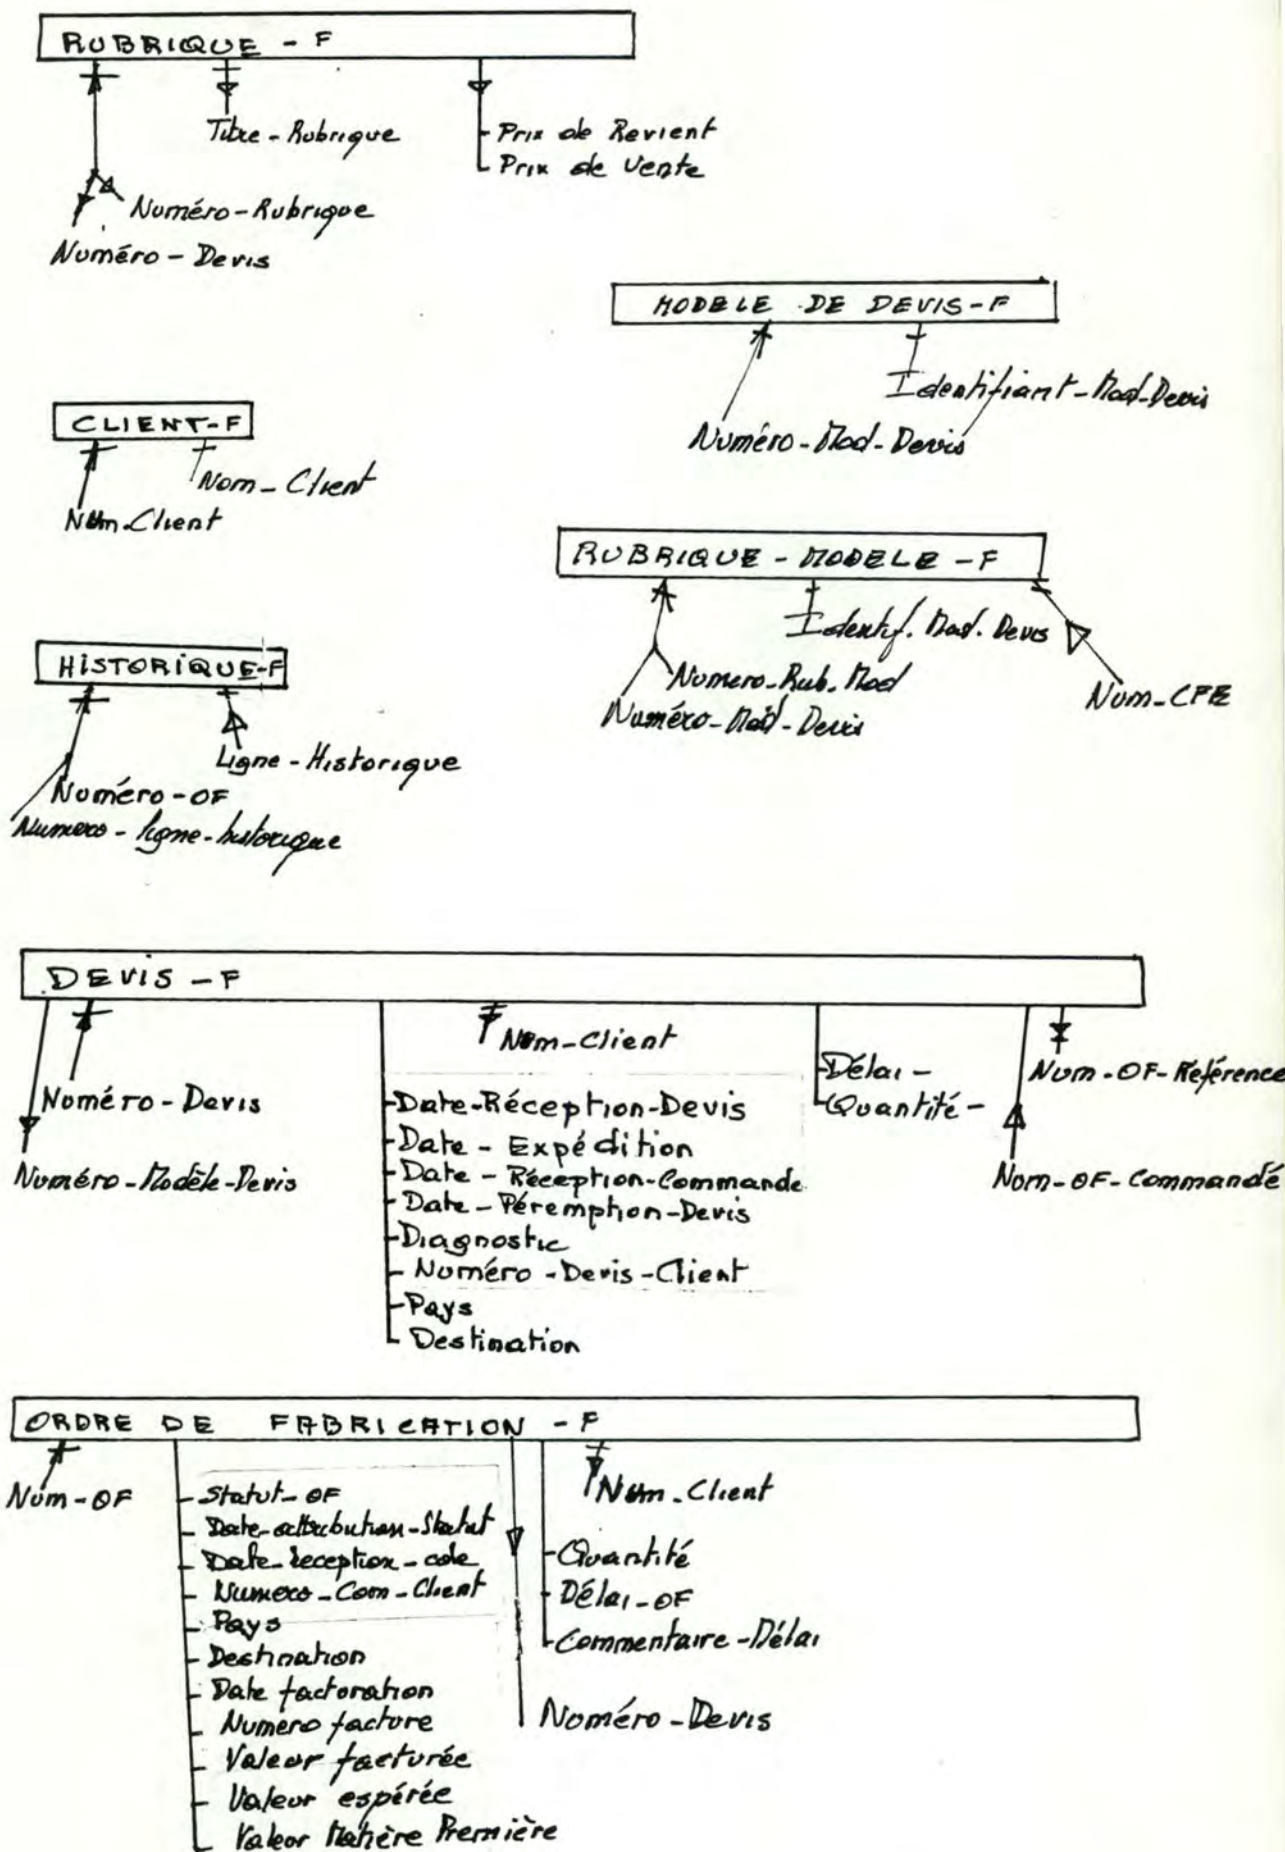 RUBRIQUE - F
Titre - Rubrique
Prix de Revient
Prix de Vente
Numéro - Rubrique
Numéro - Devis
MODELE DE DEVIS - F
Identifiant - Mod - Devis
Numéro - Mod - Devis
CLIENT - F
Nom - Client
Num - Client
RUBRIQUE - MODELE - F
Identif. Mod. Devis
Numero - Rub. Mod
Numéro - Mod - Devis
Num - CPE
HISTORIQUE - F
Ligne - Historique
Numéro - OF
Numero - ligne - historique
DEVIS - F
Num - Client
Numéro - Devis
Numéro - Modèle - Devis
Date - Réception - Devis
Date - Expédition
Date - Réception - Commande
Date - Péremption - Devis
Diagnostic
Numéro - Devis - Client
Pays
Destination
Délai -
Quantité -
Num - OF - Référence
Num - OF - Commandé
ORDRE DE FABRICATION - F
Num - OF
Statut - OF
Date - attribution - Statut
Date - reception - cde
Numero - Com - Client
Pays
Destination
Date facturation
Numéro facture
Valeur facturée
Valeur espérée
Valeur Matière Première
Num - Client
Quantité
Délai - OF
Commentaire - Délai
Numéro - Devis